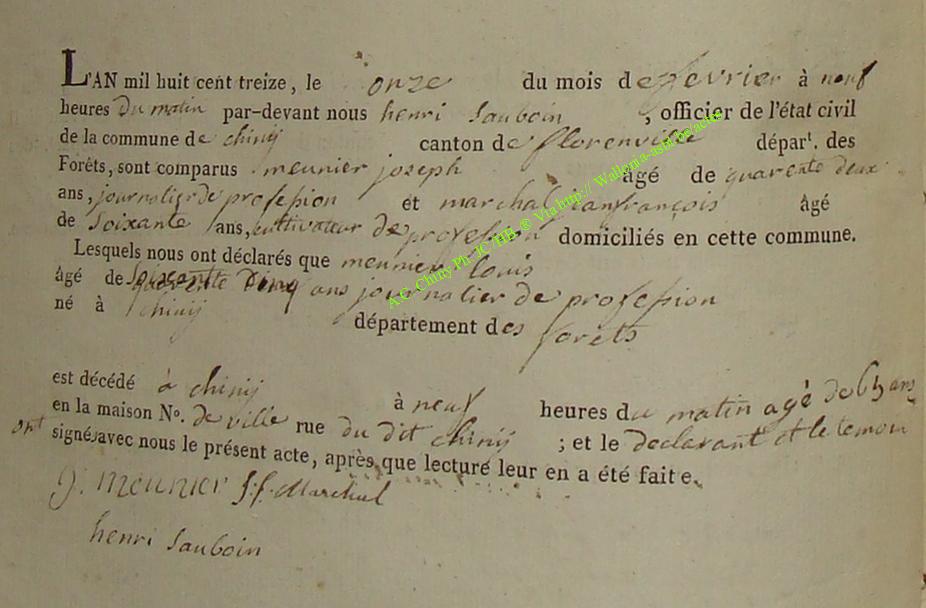 L'AN mil huit cent treize, le onze du mois de fevrier à neuf
heures du matin par-devant nous henri Sauboin, officier de l'état civil
de la commune de chiny canton de florenville départ. des
Forêts, sont comparus meunier joseph âgé de quarente deux
ans, journalier de profession et marchal jeanfrançois âgé
de Soixante ans, cultivateur de profession domiciliés en cette commune.
Lesquels nous ont déclarés que meunier louis
âgé de cinq ans journalier de profession
né à chiny département des forets
est décédé à chiny à neuf heures du matin agé de 65 ans
en la maison No. de ville rue du dit chiny ; et le declarant et le temoin
ont signé avec nous le présent acte, après que lecture leur en a été faite.
J. meunier J. f. Marchal
henri Sauboin
A.G. Chiny Ph. JC /HB. © Via http:// Wallonia-asbl.be/actes